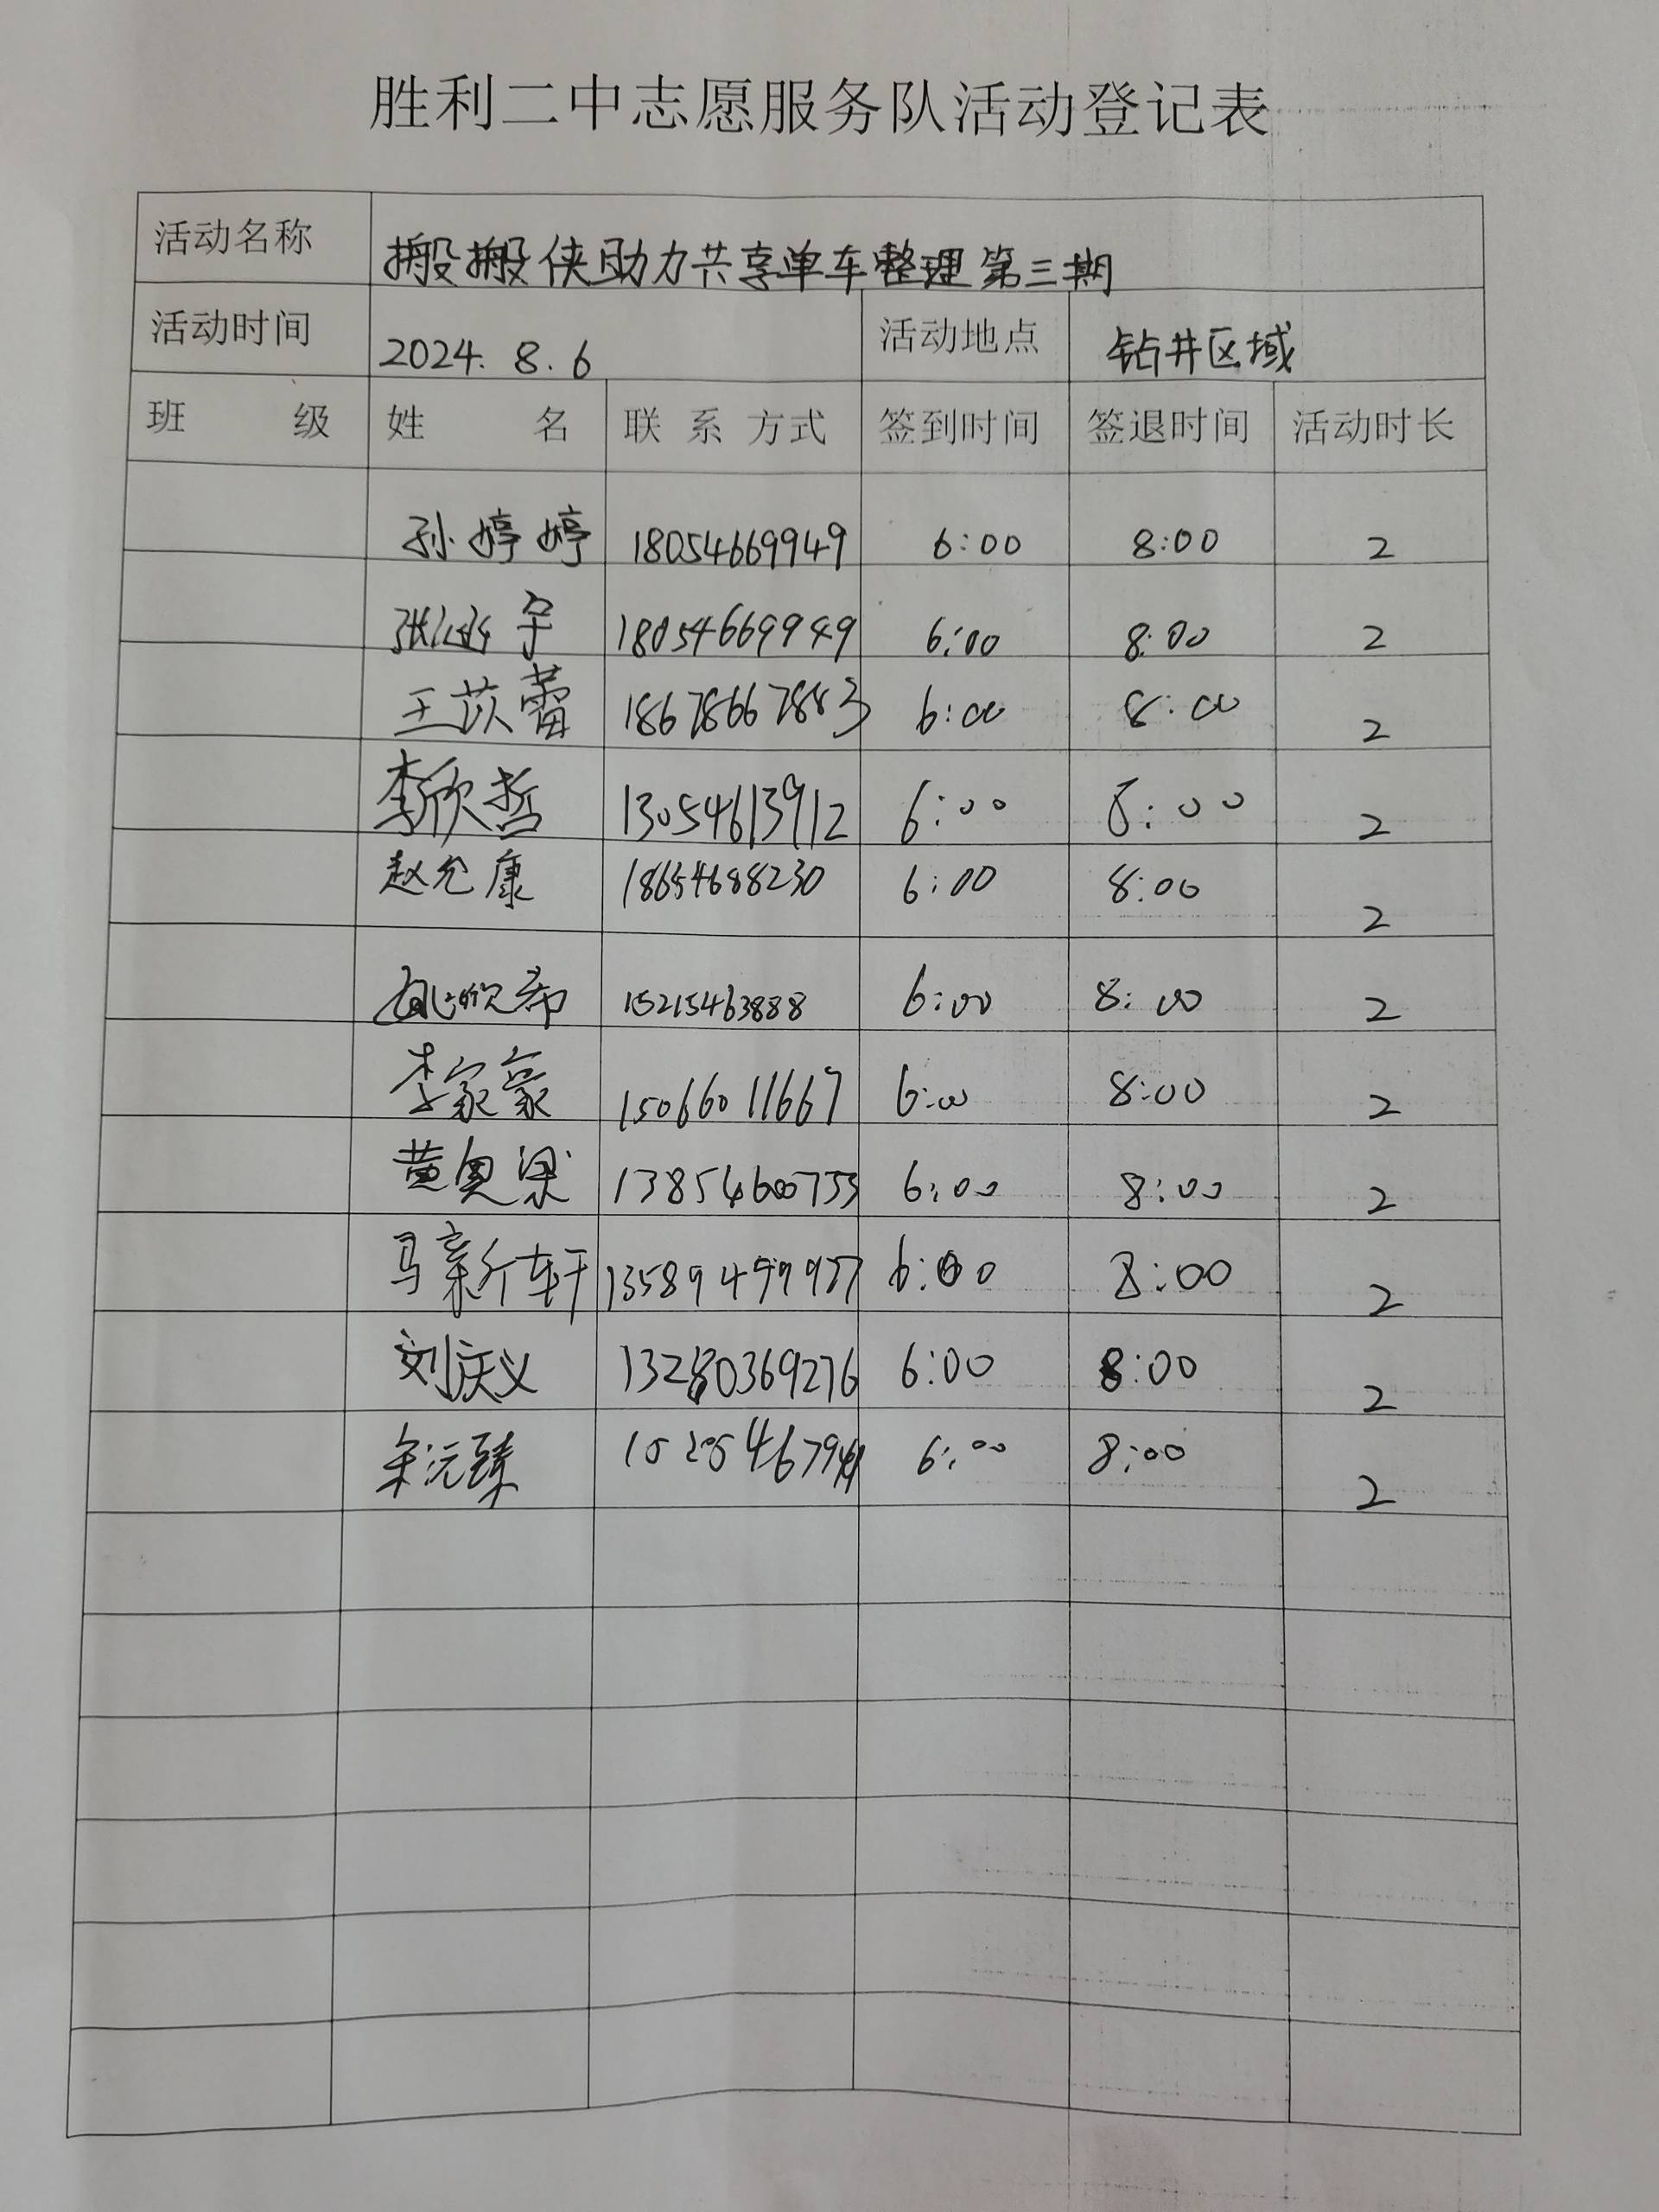 胜利二中志愿服务队活动登记表
活动名称 搬搬侠助力共享单车整理第三期
活动时间 2024.8.6 活动地点 钻井区域
班 级 姓 名 联系方式 签到时间 签退时间 活动时长
孙婷婷 18054669949 6:00 8:00 2
宇 18054669949 6:00 8:00 2
王苡蕾 18678667883 6:00 8:00 2
李欣哲 13054613912 6:00 8:00 2
赵允康 18654688230 6:00 8:00 2
姚欣希 15215463888 6:00 8:00 2
李家豪 15066011667 6:00 8:00 2
黄奥 13854600733 6:00 8:00 2
马新轩 6:00 8:00 2
刘庆义 13280369276 6:00 8:00 2
沅臻 6:00 8:00 2